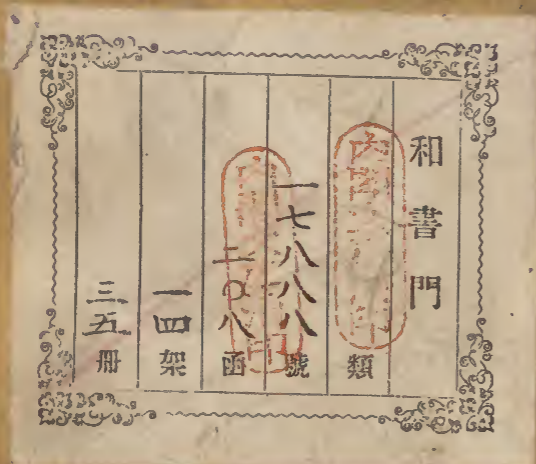 和書門
類
一七八八八號
二〇八函
一四架
三五冊